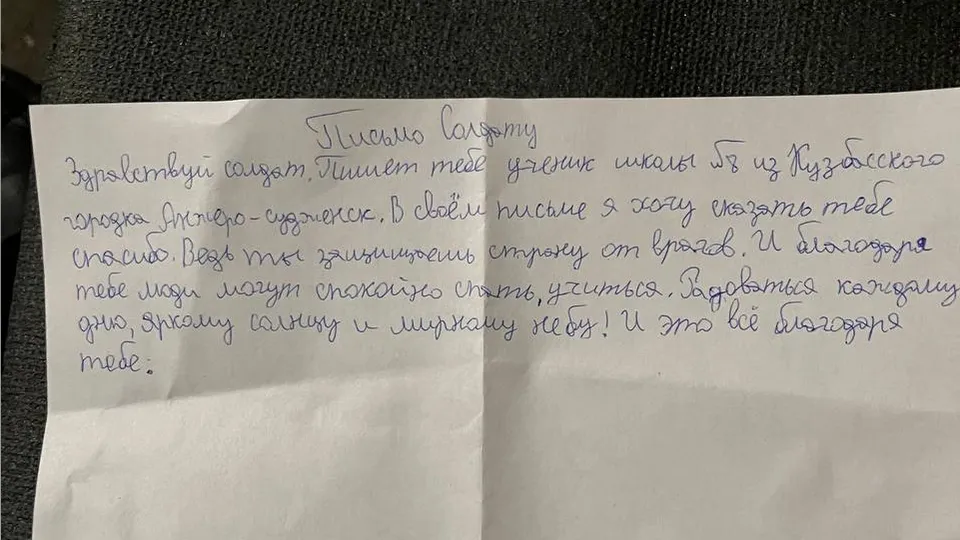 Письмо Солдату
Здравствуй солдат. Пишет тебе ученик школы из Кузбасского
городка Анжеро-судженск. В своём письме я хочу сказать тебе
спасибо. Ведь ты защищаешь страну от врагов. И благодаря
тебе люди могут спокойно спать, учиться. Радоваться каждому
дню, яркому солнцу и мирному небу! И это всё благодаря
тебе.